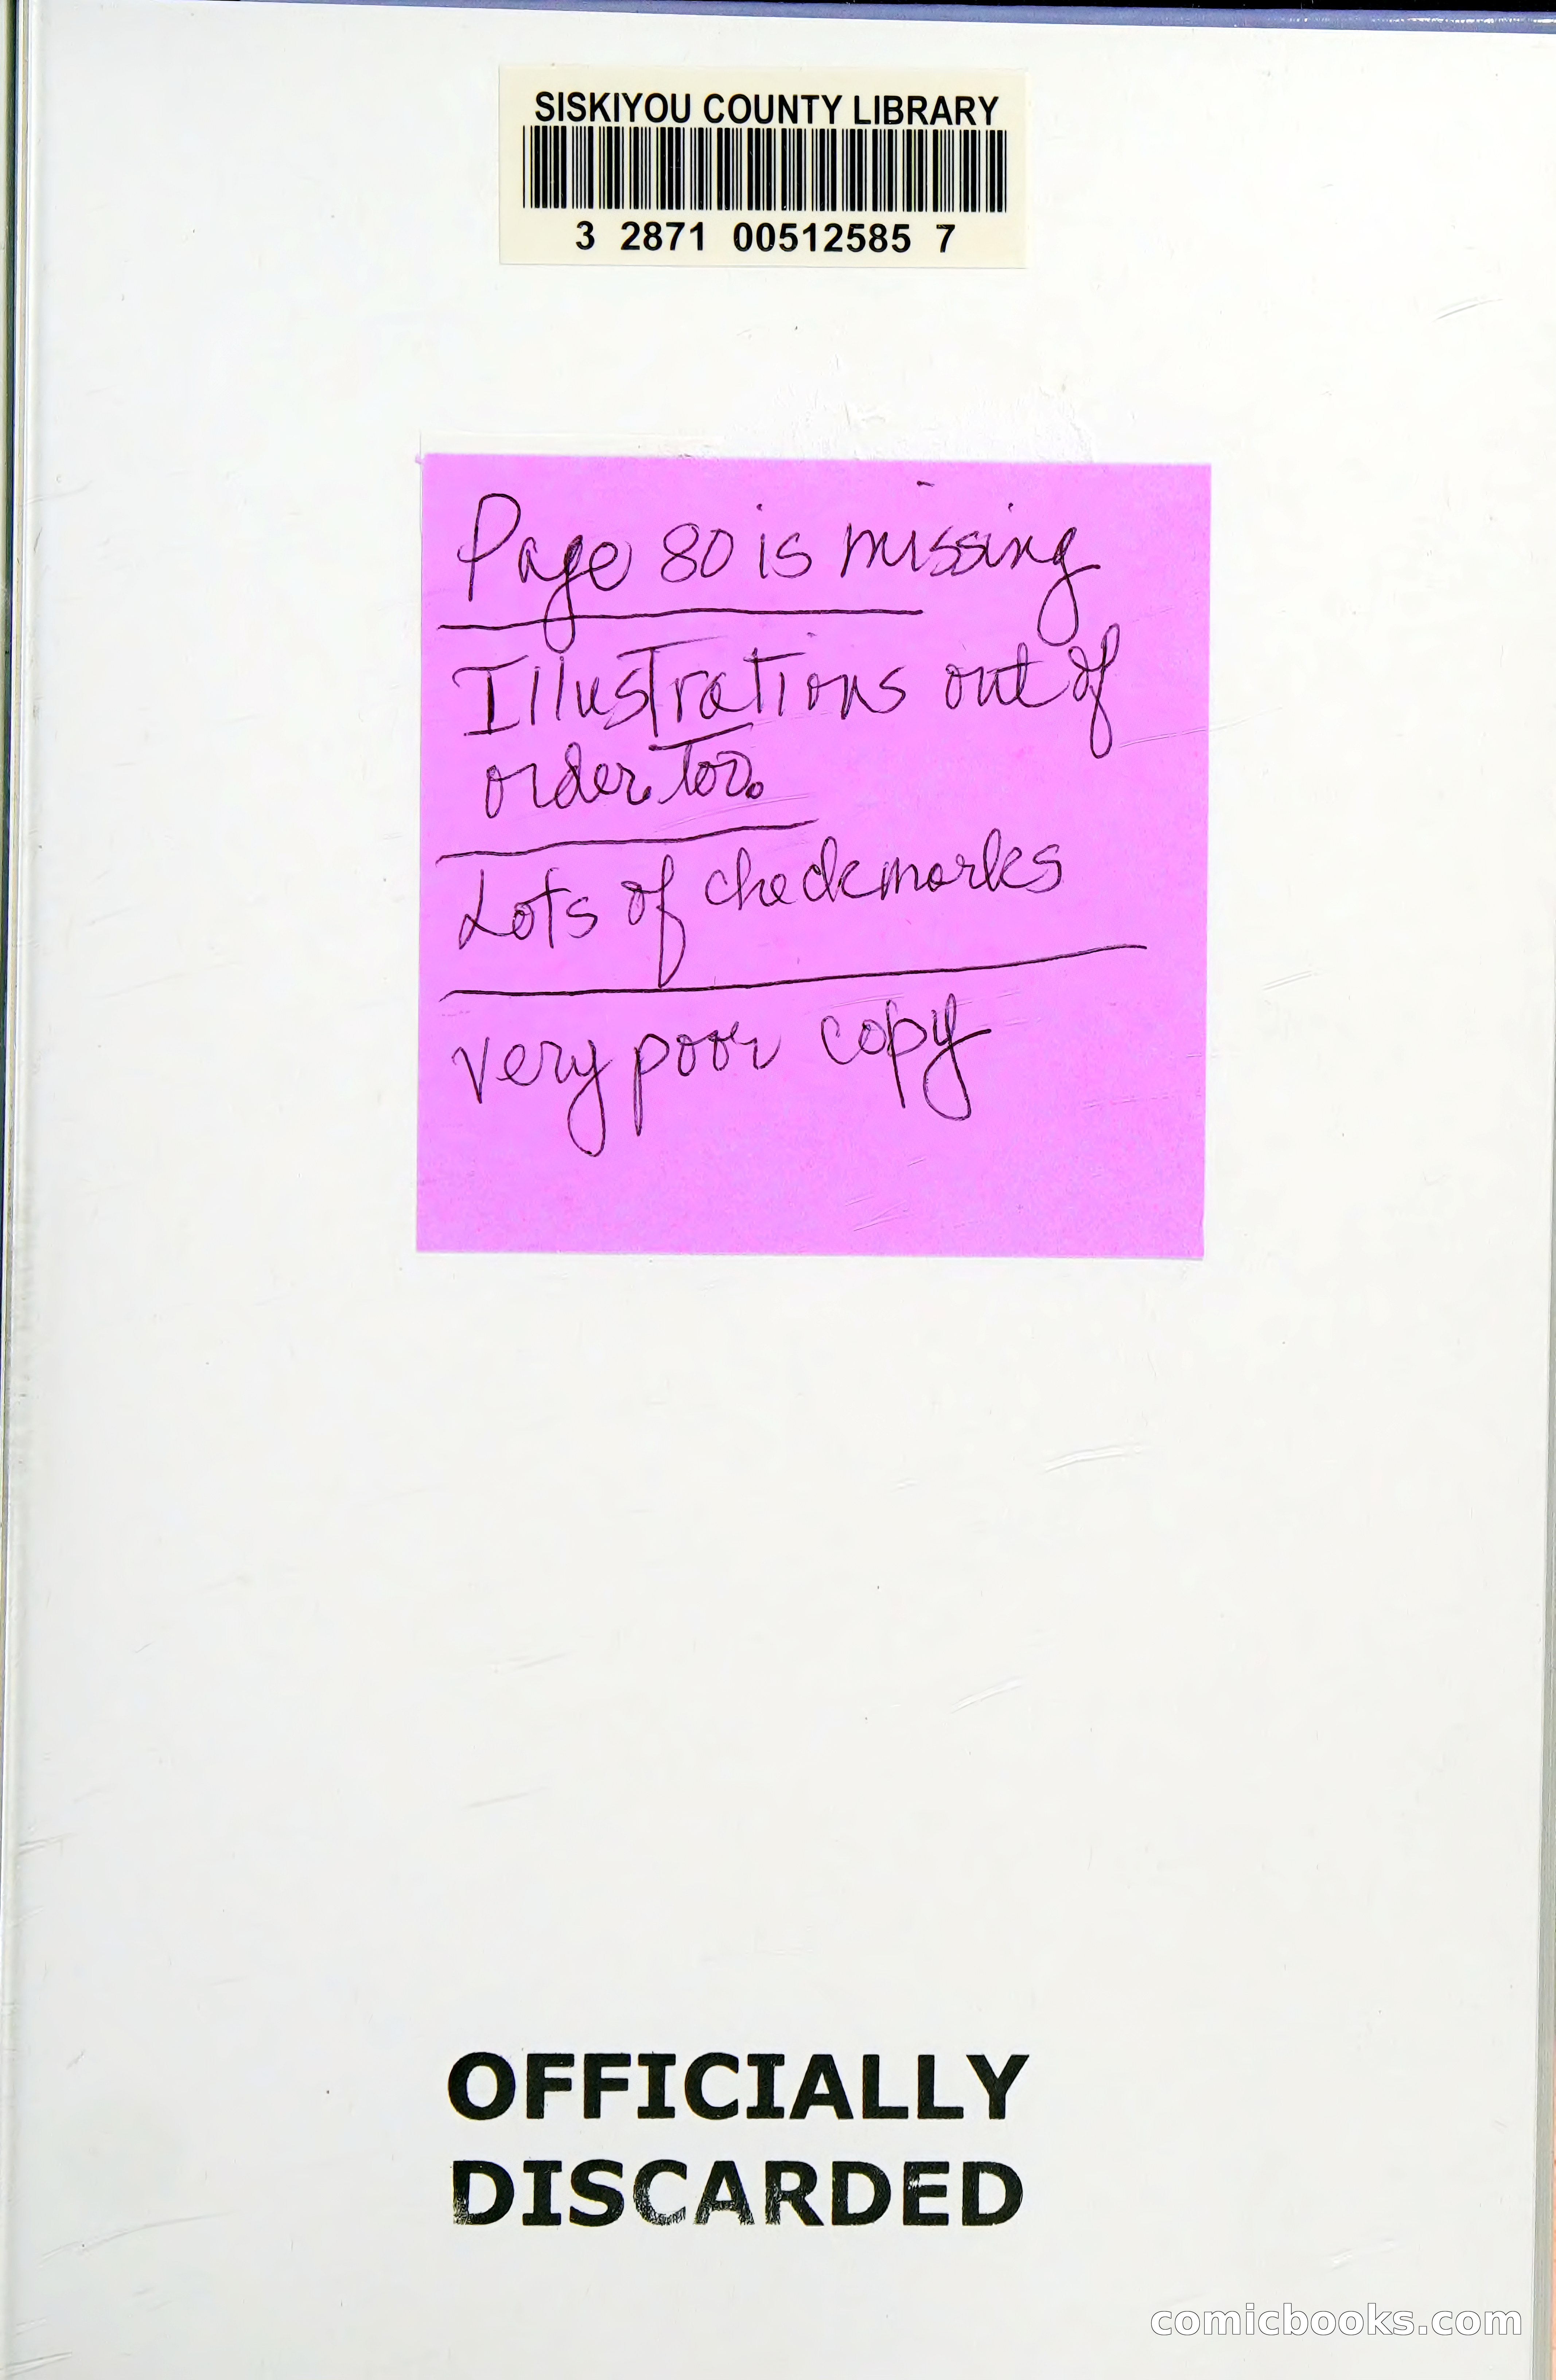 SISKIYOU COUNTY LIBRARY
3 2871 00512585 7
Page 80 is missing
Illustrations out of
order too.
Lots of checkmarks
very poor copy
OFFICIALLY
DISCARDED
comicbooks.com